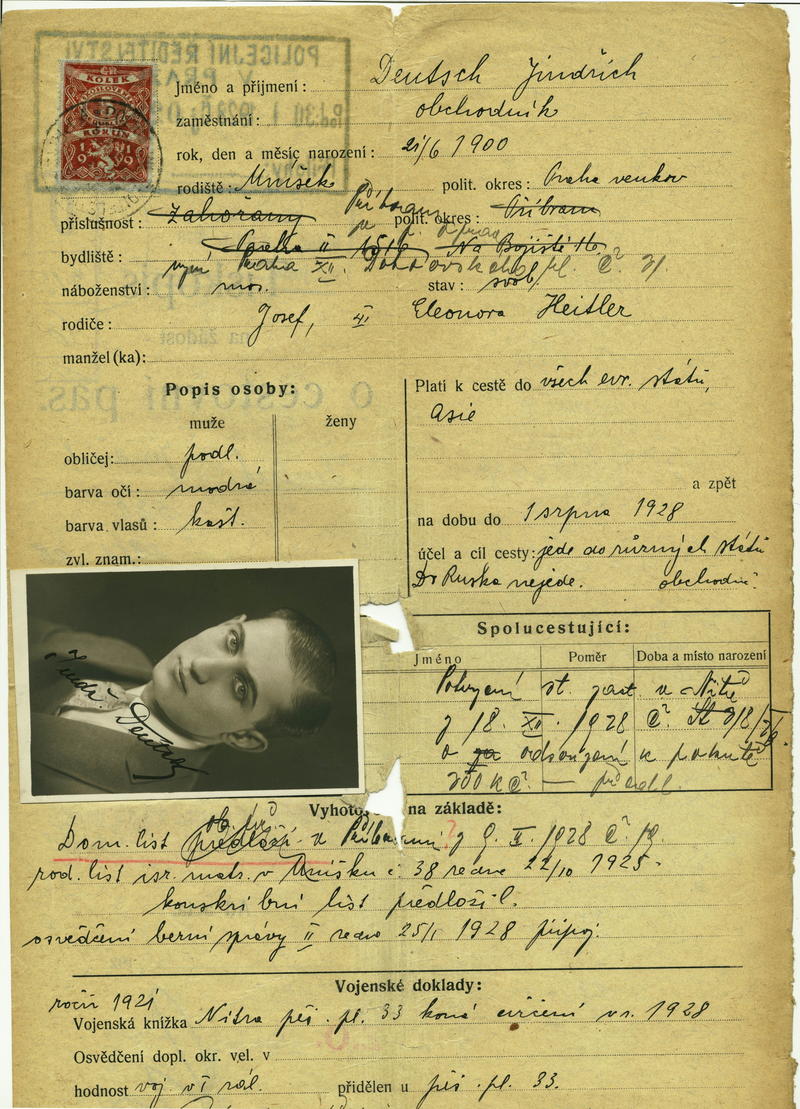 POLICEJNÍ ŘEDITELSTVÍ
V PRAZE
KOLEK
KORUN
1919
Jméno a příjmení: Deutsch Jindřich
zaměstnání: obchodník
rok, den a měsíc narození: 21/6 1900
rodiště: Mníšek polit. okres: Praha venkov
příslušnost: Zahořany Příbram polit. okres: Příbram
bydliště: Praha II 1516 Na Bojišti 16
nyní Praha XII.
náboženství: mos. stav: svob.
rodiče: Josef, Eleonora Heitler
manžel(ka):
Popis osoby:
muže ženy
obličej: podl.
barva očí: modré
barva vlasů: kašt.
zvl. znam.:
Platí k cestě do všech evr. států,
Asie
a zpět
na dobu do 1 srpna 1928
účel a cíl cesty: jede do různých států
Do Ruska nejede. obchodně.
Jindř. Deutsch
Spolucestující:
Jméno Poměr Doba a místo narození
Potvrzení st. zast. v Nitře
z 18. XII. 1928 č.
o odsouzení k pokutě
200 Kč
na základě:
Dom. list v z 9. II. 1928 č.
rod. list isr. matr. v Mníšku č. 38 ze dne 22/10 1925
konskribní list předložil.
osvědčení berní správy II ze dne 25/I 1928 připoj.
Vojenské doklady:
roční 1921
Vojenská knížka Nitra pěš. pl. 33 koná cvičení v r. 1928
Osvědčení dopl. okr. vel. v
hodnost voj. v zál. přidělen u pěš. pl. 33.